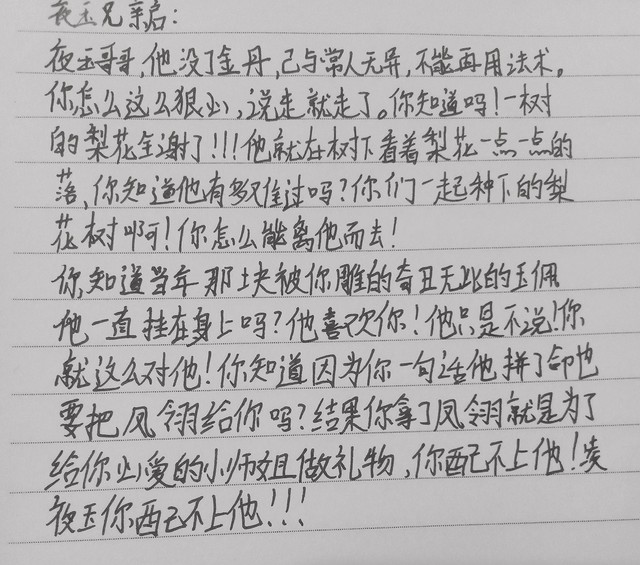 夜玉兄亲启:
夜玉哥哥,他没了金丹,己与常人无异,不能再用法术。
你怎么这么狠心,说走就走了。你知道吗!一树
的梨花全谢了!!!他就在树下看着梨花一点一点的
落,你知道他有多难过吗?你们一起种下的梨
花树啊!你怎么能离他而去!
你知道当年那块被你雕的奇丑无比的玉佩
他一直挂在身上吗?他喜欢你!他只是不说!你
就这么对他!你知道因为你一句话他拼了命也
要把凤翎给你吗?结果你拿了凤翎就是为了
给你心爱的小师姐做礼物,你配不上他!凌
夜玉你配不上他!!!